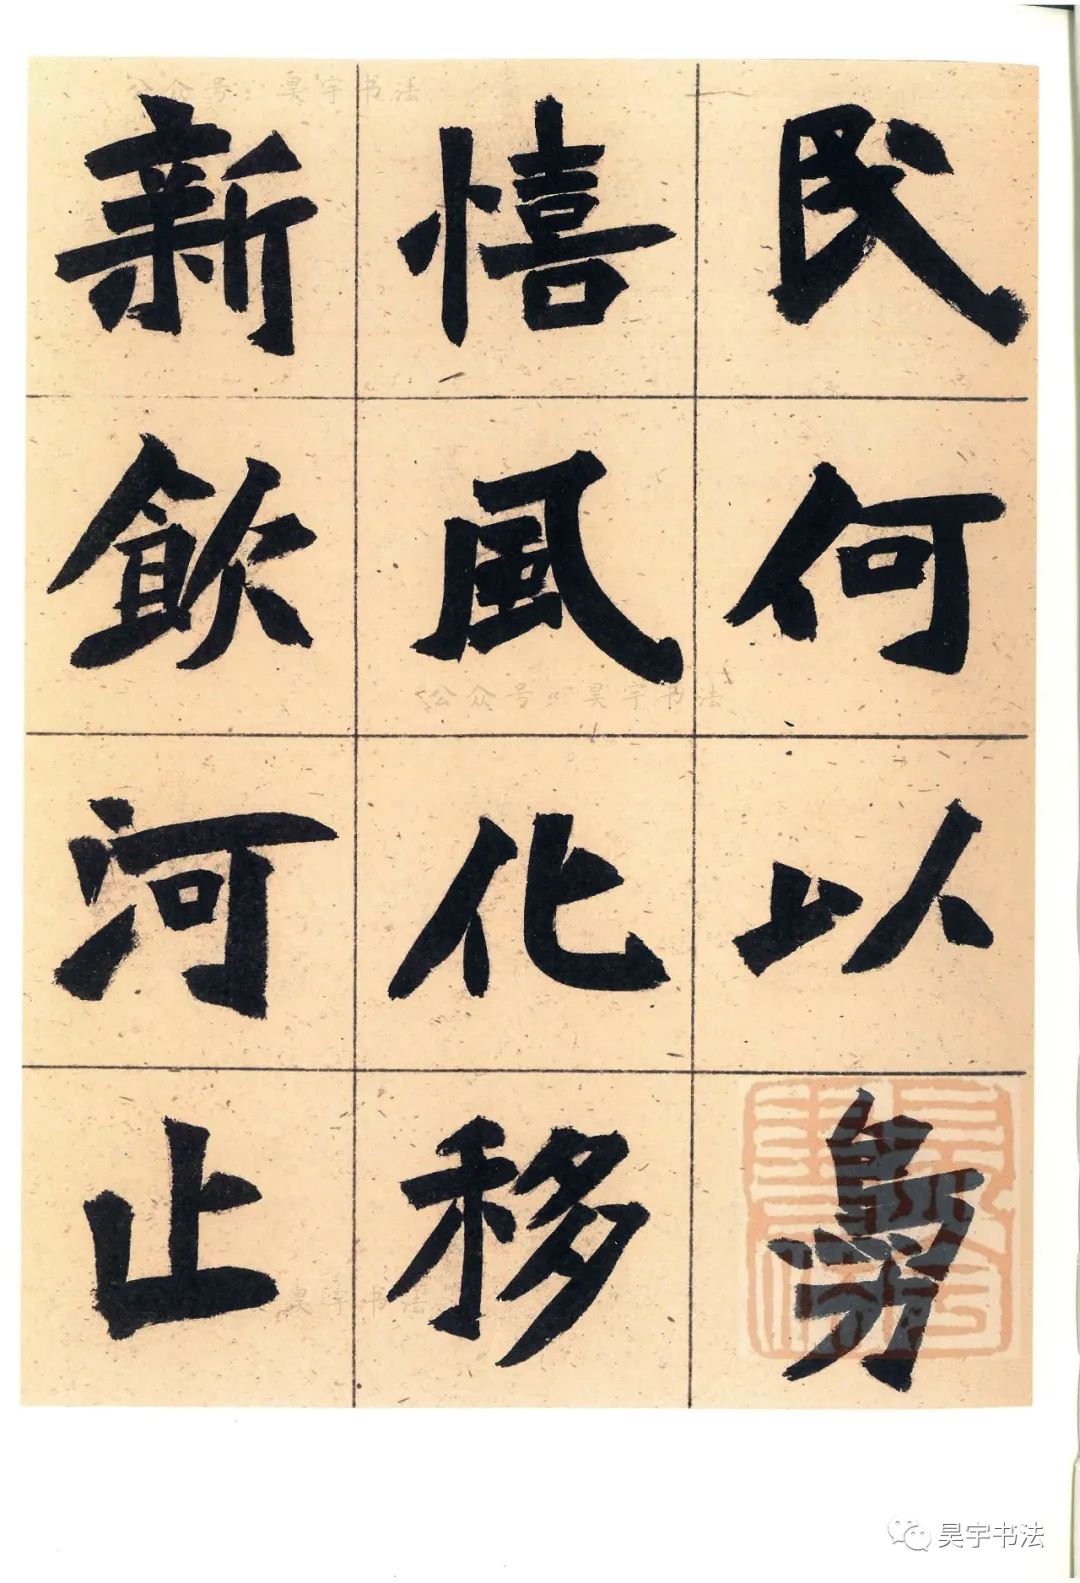 民何以勗
憘風化移
新飲河止
公众号：昊宇书法
公众号：昊宇书法
昊宇书法
昊宇书法